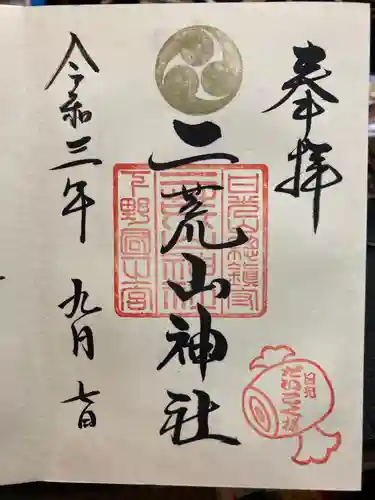 奉拝
二荒山神社
日光総鎮守
二荒山神社
下野国一之宮
日光
だいこく様
令和三年
九月七日